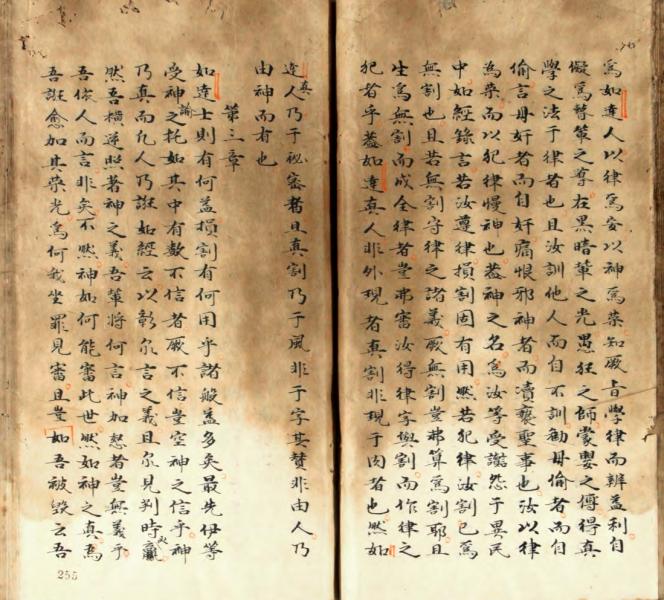 為如達人以律為安以神為榮知厥旨學律而辨益利自
儗為瞽策之尊在黑暗輩之光愚狂之師蒙嬰之傅得真
學之法于律者也且汝訓他人而自不訓勸毋偷者而自
偷言毋奸者而自奸痛恨邪神者而瀆褻聖事也汝以律
為榮而以犯律慢神也蓋神之名為汝等受謗怨于異民
中如經錄言若汝遵律損割固有用然若犯律汝割已為
無割也且若無割守律之諸義厥無割豈弗算為割耶且
生為無割而成全律者豈弗審汝得律字與割而作律之
犯者乎蓋如達真人非外現者真割非現于肉者也然如
達真人乃于祕密者且真割乃于風非于字其贊非由人乃
由神而有也
第三章
如達士則有何益損割有何用乎諸般益多矣最先伊等
受神之托諭如其中有數不信者厥不信豈空神之信乎神
乃真而凡人乃誑如經云以彰尔言之義且尔見判時必贏
然吾橫逆照著神之義吾輩將何言神加怒者豈無義乎
吾依人而言非矣不然神如何能審此世然如神之真為
吾誑愈加其榮光為何我坐罪見審且豈如吾被毀云吾
255